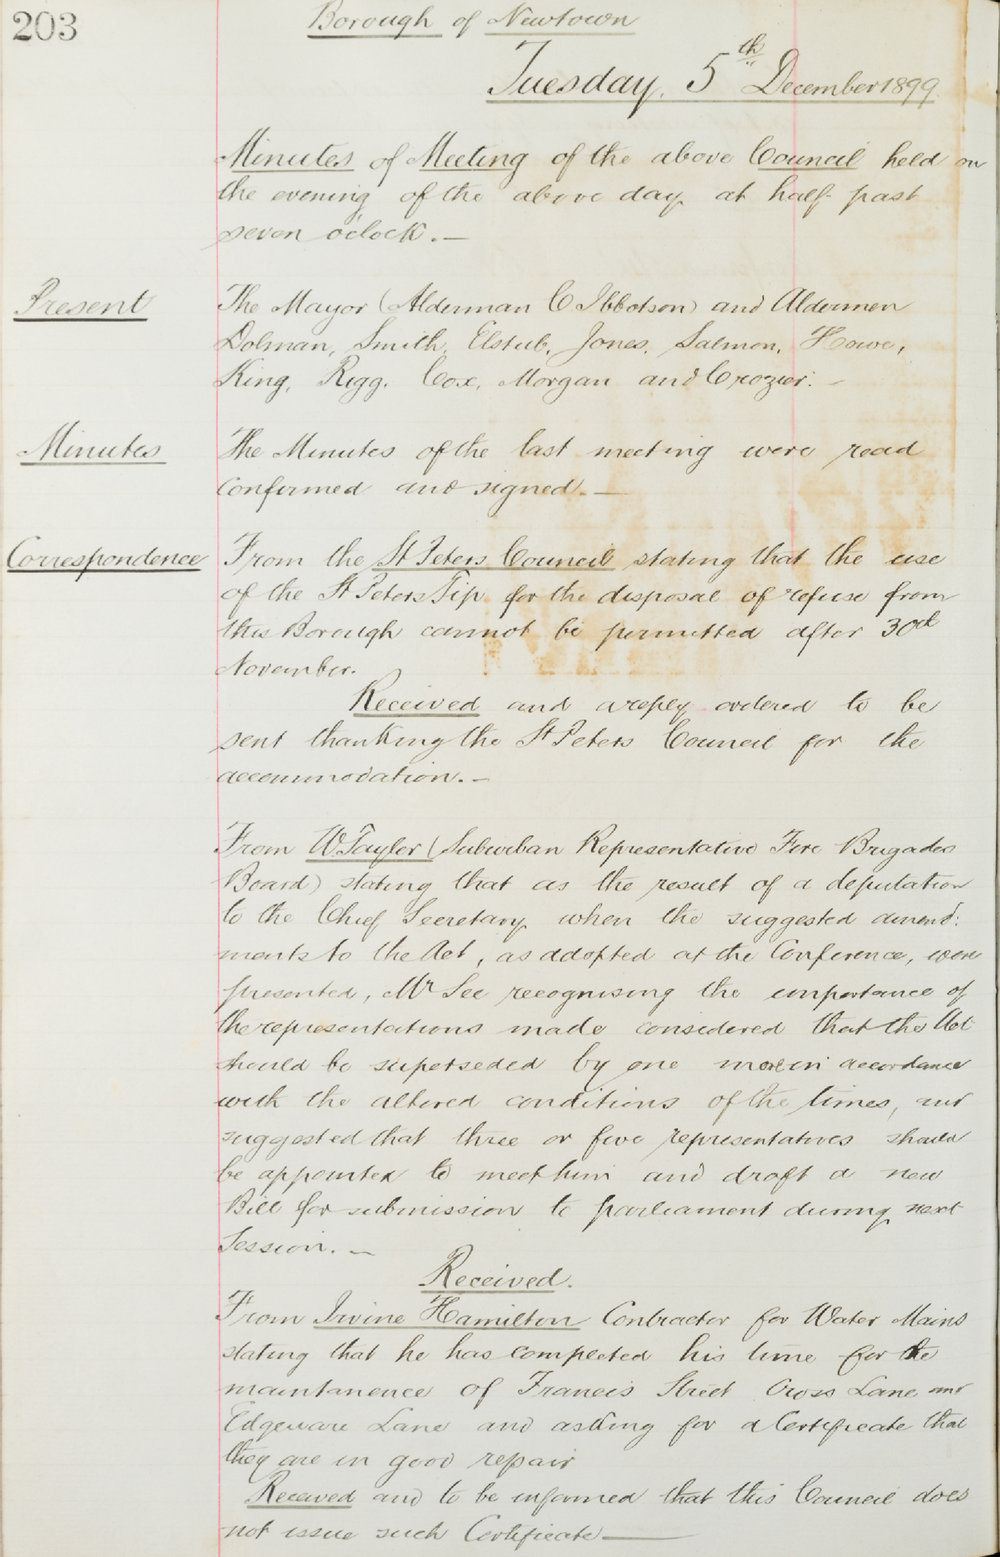 203
Borough of Newtown
Tuesday, 5th December 1899
Minutes of Meeting of the above Council held on
the evening of the above day at half past
seven o'clock. —
Present
The Mayor (Alderman C Ibbotson) and Aldermen
Dolman, Smith, Elstub, Jones, Salmon, Howe,
King, Rigg, Cox, Morgan and Crozier. —
Minutes
The Minutes of the last meeting were read
confirmed and signed. —
Correspondence
From the St Peters Council stating that the use
of the St Peters Tip for the disposal of refuse from
this Borough cannot be permitted after 30th
November.
Received and a reply ordered to be
sent thanking the St Peters Council for the
accommodation. —
From W Taylor (Suburban Representative Fire Brigades
Board) stating that as the result of a deputation
to the Chief Secretary, when the suggested amend:
ments to the Act, as adopted at the Conference, were
presented, Mr See recognising the importance of
the representations made considered that the Act
should be superseded by one more in accordance
with the altered conditions of the times, and
suggested that three or five representatives should
be appointed to meet him and draft a new
Bill for submission to parliament during next
Session. —
Received.
From Irvine Hamilton Contractor for Water Mains
stating that he has completed his time for the
maintanence of Francis Street Cross Lane and
Edgeware Lane and asking for a Certificate that
they are in good repair
Received and to be informed that this Council does
not issue such Certificate —